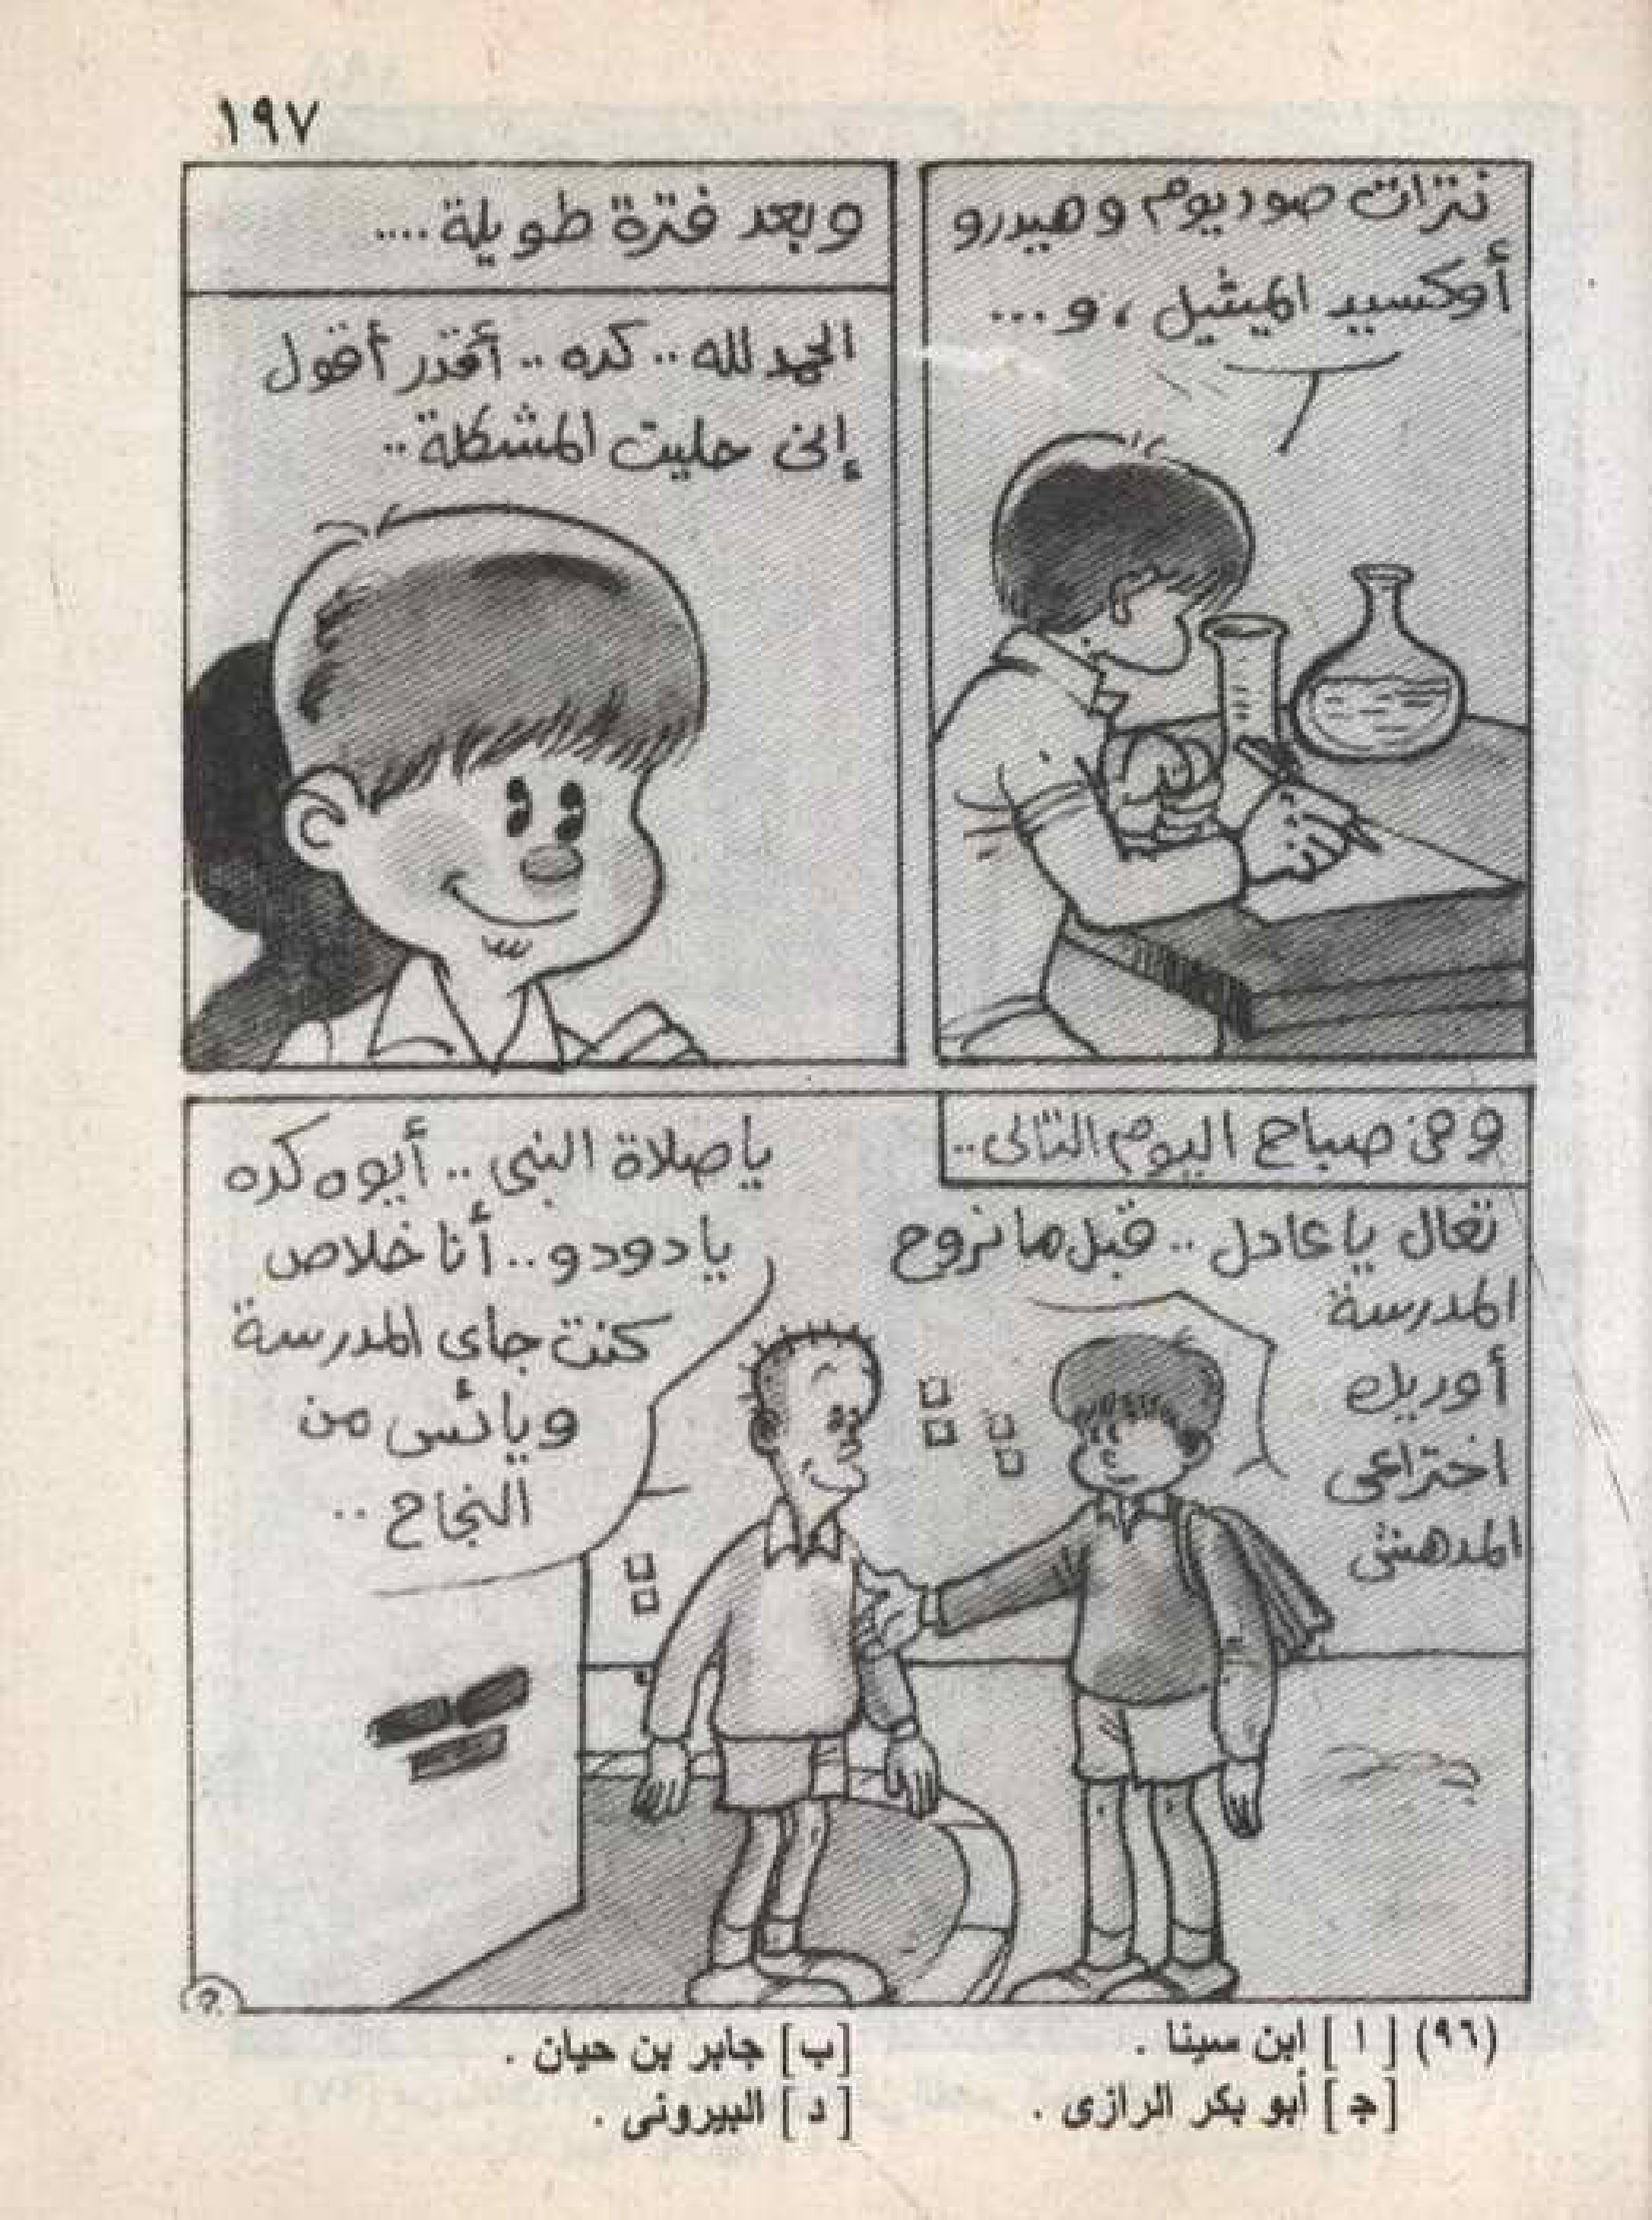 ١٩٧
نترات صوديوم وهيدرو
أوكسيد الميثيل ، و ...
وبعد فترة طويلة ....
الحمد لله .. كده .. أقدر أقول
إنى حليت المشكلة ..
وفى صباح اليوم التالى ..
تعال يا عادل .. قبل ما نروح
المدرسة
أوريك
اختراعى
المدهش
يا صلاة النبى .. أيوه كده
يا دودو .. أنا خلاص
كنت جاى المدرسة
ويائس من
النجاح ..
(٩٦) [ ا ] ابن سينا . [ب] جابر بن حيان .
[ج] أبو بكر الرازى . [ د ] البيرونى .